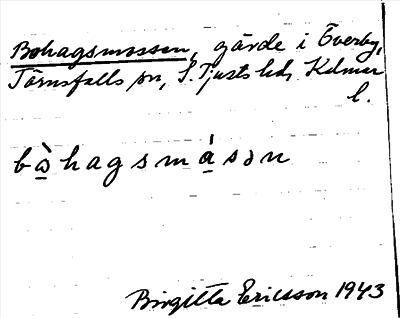 Bohagsmossen, gärde i Överby,
Törnsfalls sn, S. Tjusts hd, Kalmar
l.
bò̲hagsmá̲sən
Birgitta Ericsson 1943